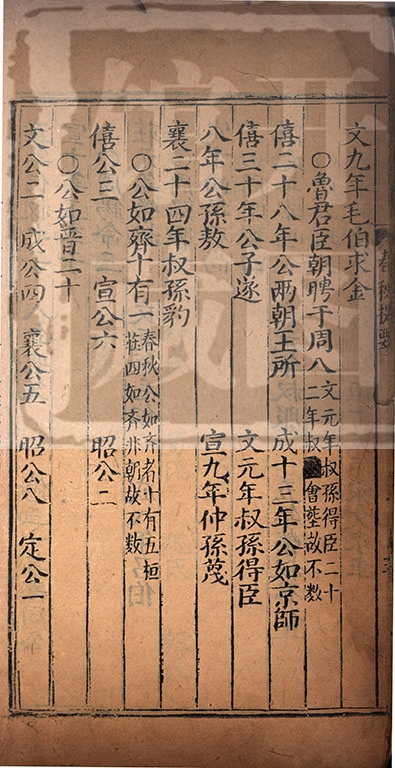 春秋提要
文九年毛伯求金
○魯君臣朝聘于周八 文元年叔孫得臣二十
二年叔 會塟故不數
僖二十八年公兩朝王所 成十三年公如京師
僖三十年公子遂 文元年叔孫得臣
八年公孫敖 宣九年仲孫蔑
襄二十四年叔孫豹
○公如齊十有一 春秋公如齊者十有五桓
莊四如齊非朝故不數
僖公三 宣公六 昭公二
○公如晉二十
文公二 成公四 襄公五 昭公八 定公一